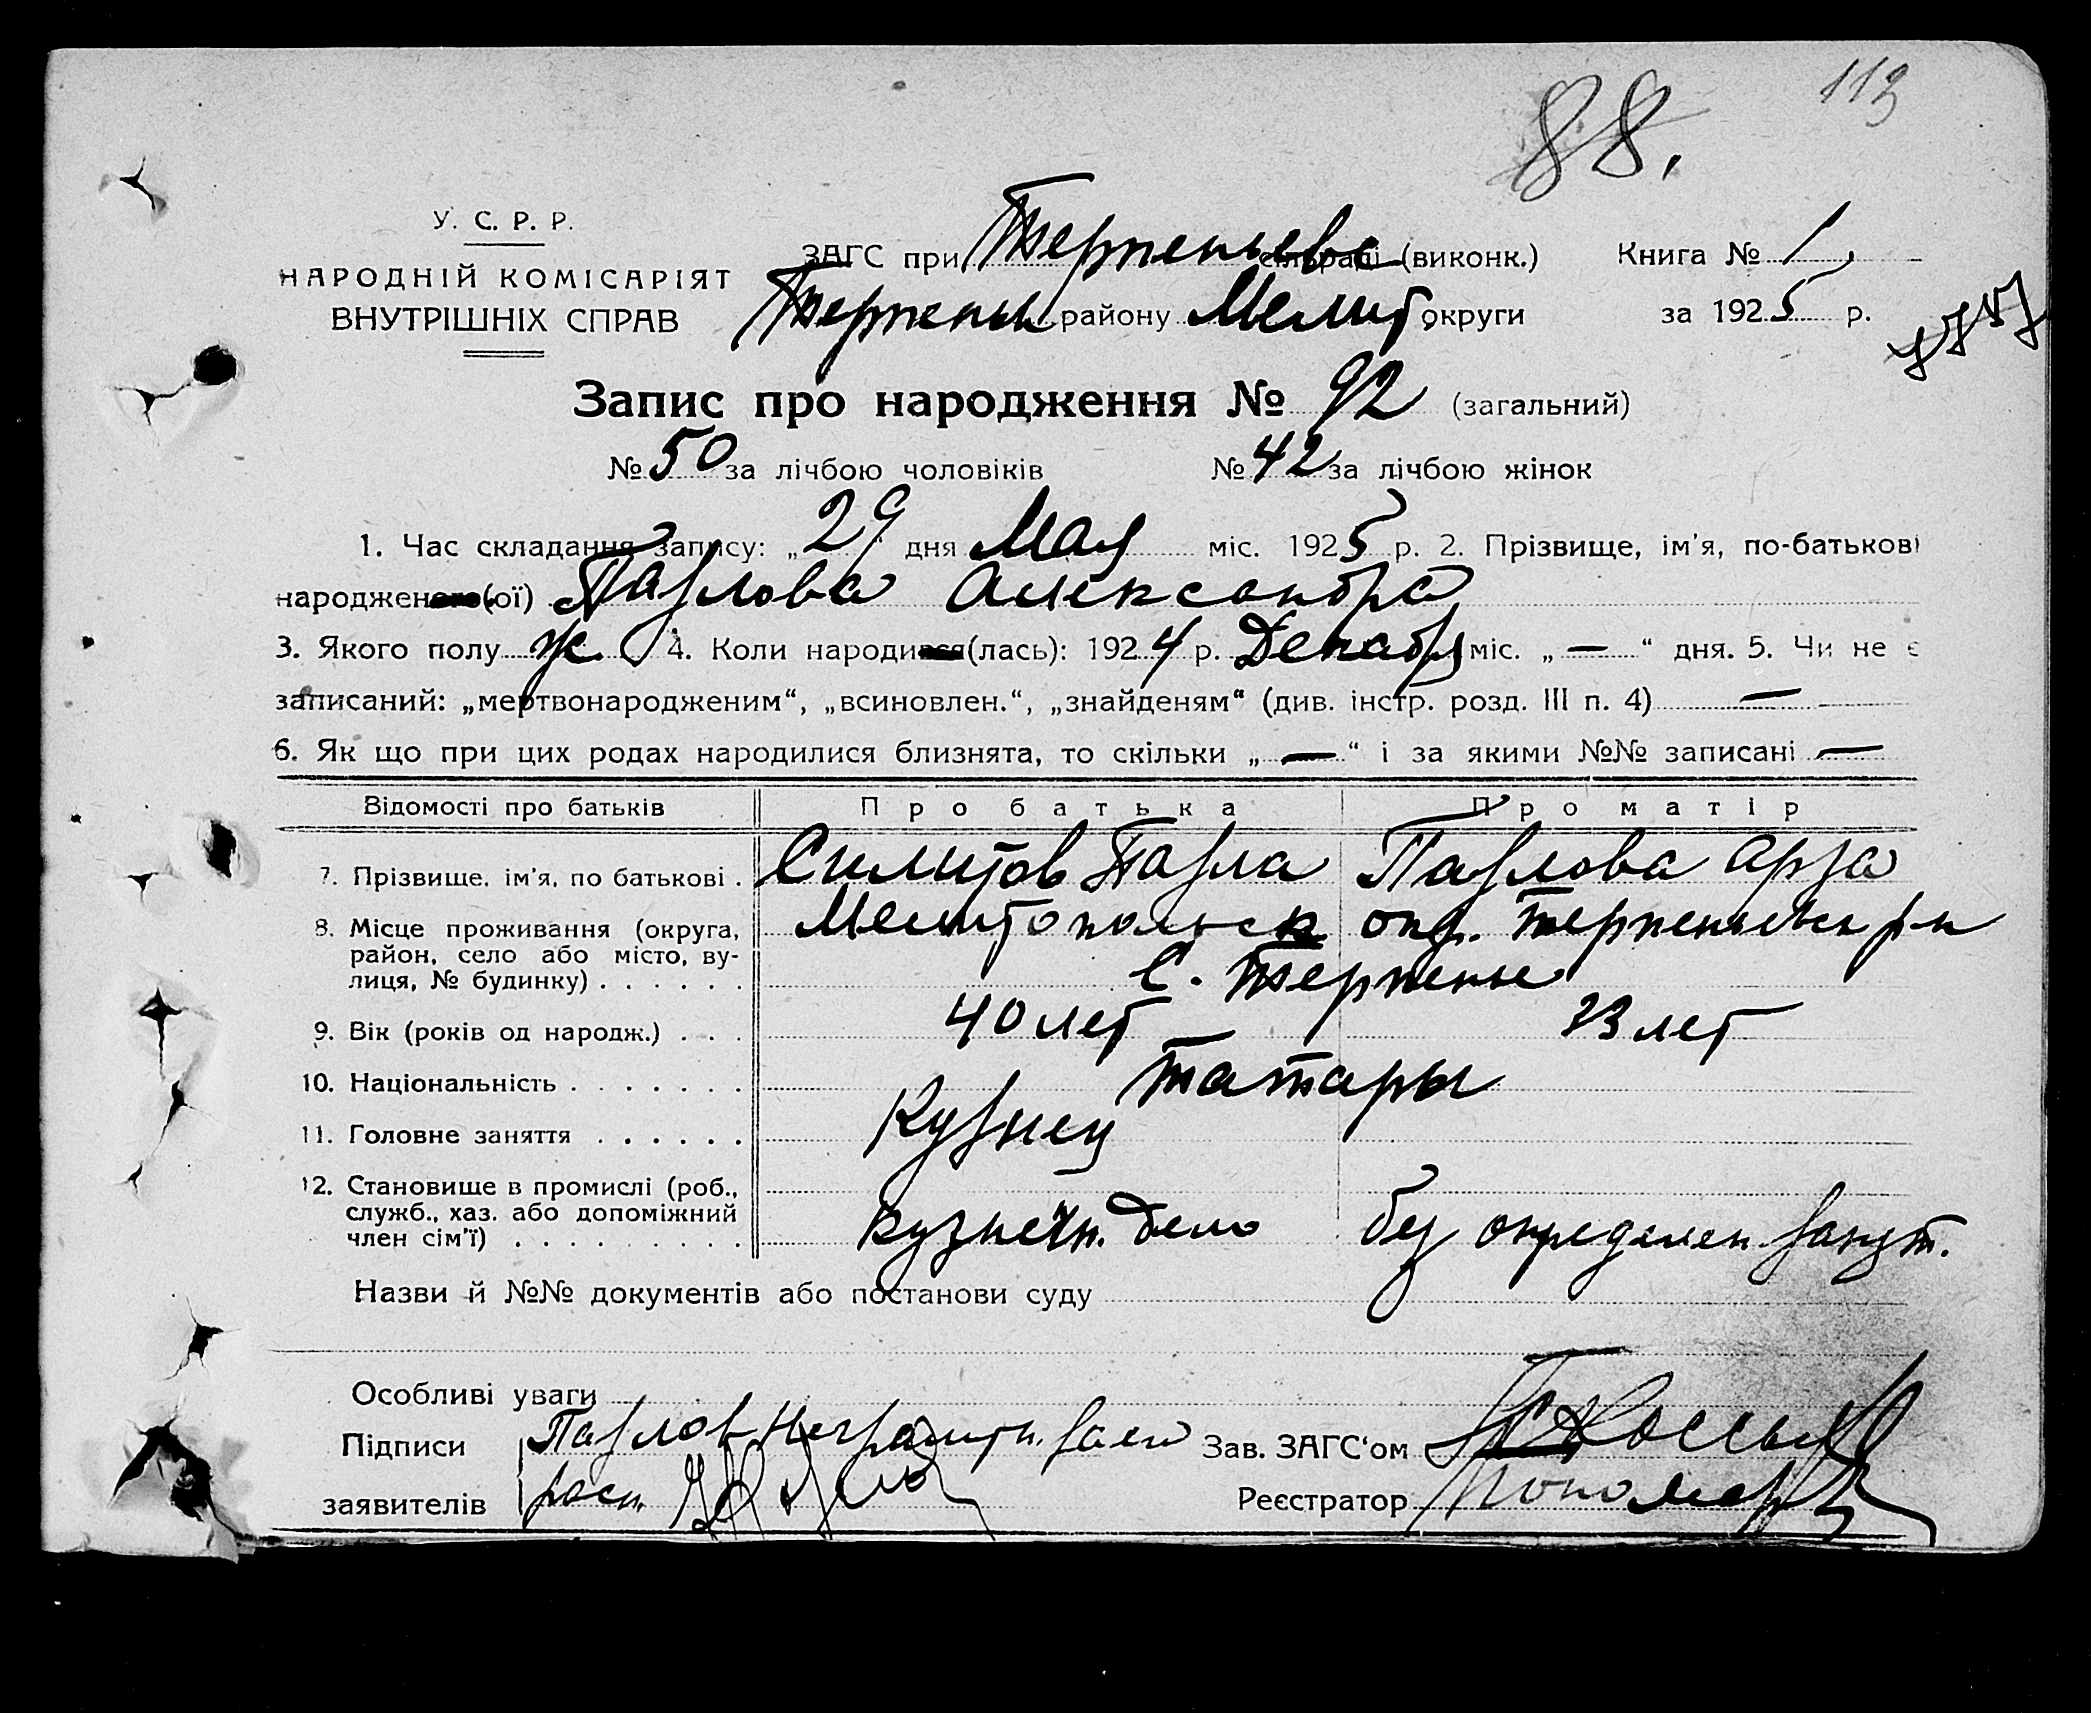 113
88.
У. С. Р. Р.
НАРОДНІЙ КОМІСАРІЯТ
ВНУТРІШНІХ СПРАВ
ЗАГС при Терпеньевс сільраді (виконк.) Книга № 1
Терпеньи району Мелит округи за 1925 р.
Запис про народження № 92 (загальний)
№ 50 за лічбою чоловіків № 42 за лічбою жінок
1. Час складання запису: „29“ дня Мая міс. 1925 р. 2. Прізвище, ім'я, по-батькові
народженого(ої) Павлова Александра
3. Якого полу ж. 4. Коли народився(лась): 1924 р. Декабря міс. „—“ дня. 5. Чи не є
записаний: „мертвонародженим“, „всиновлен.“, „знайденям“ (див. інстр. розд. III п. 4) —
6. Як що при цих родах народилися близнята, то скільки „—“ і за якими №№ записані —
Відомості про батьків Про батька Про матір
7. Прізвище, ім'я, по батькові . Павлова
8. Місце проживання (округа, Мелитопольск окр. Терпеньевск р-н
район, село або місто, ву-
лиця, № будинку) . . . . . . С. Терпенье
9. Вік (років од народж.) . . . 40 лет 23 лет
10. Національність . . . . . . . Татары
11. Головне заняття . . . . . . Кузнец
12. Становище в промислі (роб.,
служб., хаз. або допоміжний
член сім'ї) . . . . . . . . . кузнечн. дело без определен. занят.
Назви й №№ документів або постанови суду
Особливі уваги
Підписи Павлов Неграмотн. за его Зав. ЗАГС'ом
заявителів расп. Реєстратор Пономар